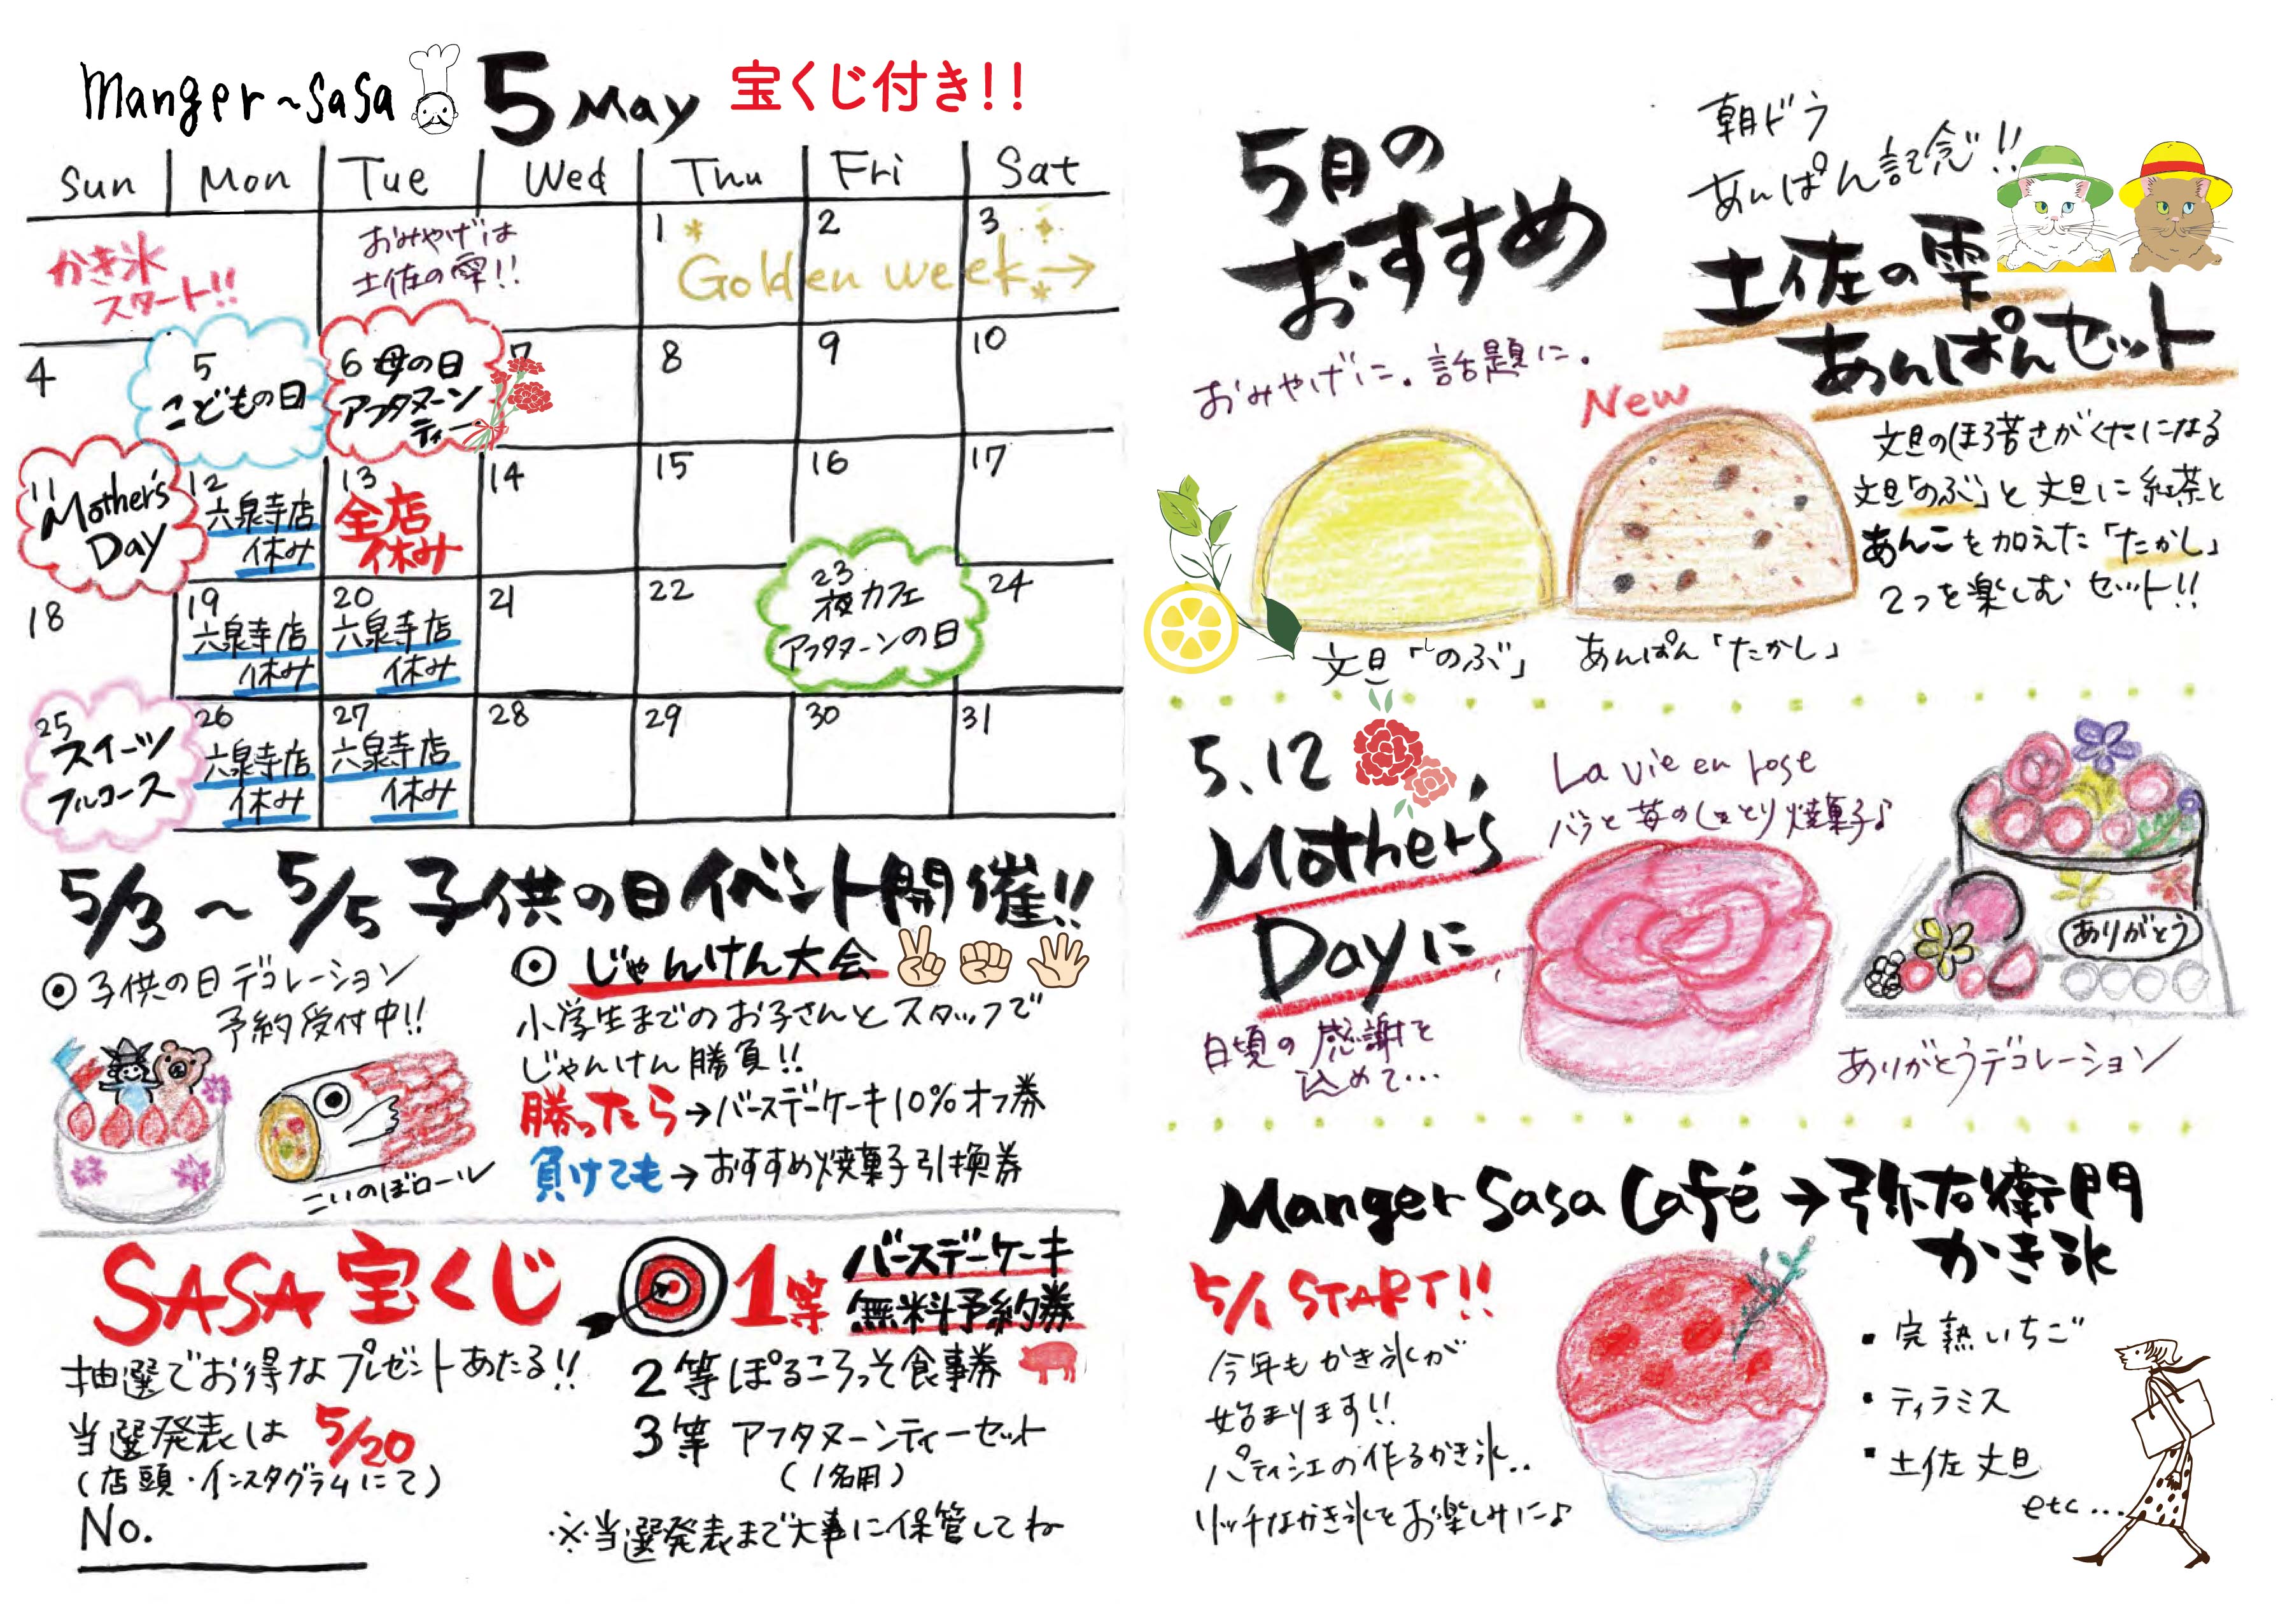 Manger~SaSa 5 May 宝くじ付き!!
Sun Mon Tue Wed Thu Fri Sat
かき氷
スタート!!
おみやげは
土佐の雫!!
1 2 3
Golden week→
4
5
こどもの日
6 母の日
アフタヌーン
ティー
7 8 9 10
11
Mother's
Day
12
六泉寺店
休み
13
全店
休み
14 15 16 17
18
19
六泉寺店
休み
20
六泉寺店
休み
21 22
23
夜カフェ
アフタヌーンの日
24
25
スイーツ
フルコース
26
六泉寺店
休み
27
六泉寺店
休み
28 29 30 31
5/3 ~ 5/5 子供の日イベント開催!!
◎子供の日デコレーション
予約受付中!!
こいのぼロール
◎じゃんけん大会
小学生までのお子さんとスタッフで
じゃんけん勝負!!
勝ったら→バースデーケーキ10%オフ券
負けても→おすすめ焼菓子引換券
SASA宝くじ
抽選でお得なプレゼントあたる!!
当選発表は 5/20
(店頭・インスタグラムにて)
No.
1等 バースデーケーキ
無料予約券
2等 ぽるころっそ食事券
3等 アフタヌーンティーセット
(1名用)
※当選発表まで大事に保管してね
5月の
おすすめ
おみやげに。話題に。
朝ドラ
あんぱん記念!!
土佐の雫
あんぱんセット
New
文旦のほろ苦さがくせになる
文旦「のぶ」と文旦に紅茶と
あんこを加えた「たかし」
2つを楽しむセット!!
文旦「のぶ」
あんぱん「たかし」
5.12
Mother's
Dayに
日頃の感謝を
込めて…
La vie en rose
バラと苺のしっとり焼菓子♪
ありがとう
ありがとうデコレーション
Manger Sasa Café→弥右衛門
かき氷
5/1 START!!
今年もかき氷が
始まります!!
パティシエの作るかき氷..
リッチなかき氷をお楽しみに♪
・完熟いちご
・ティラミス
・土佐文旦
etc...